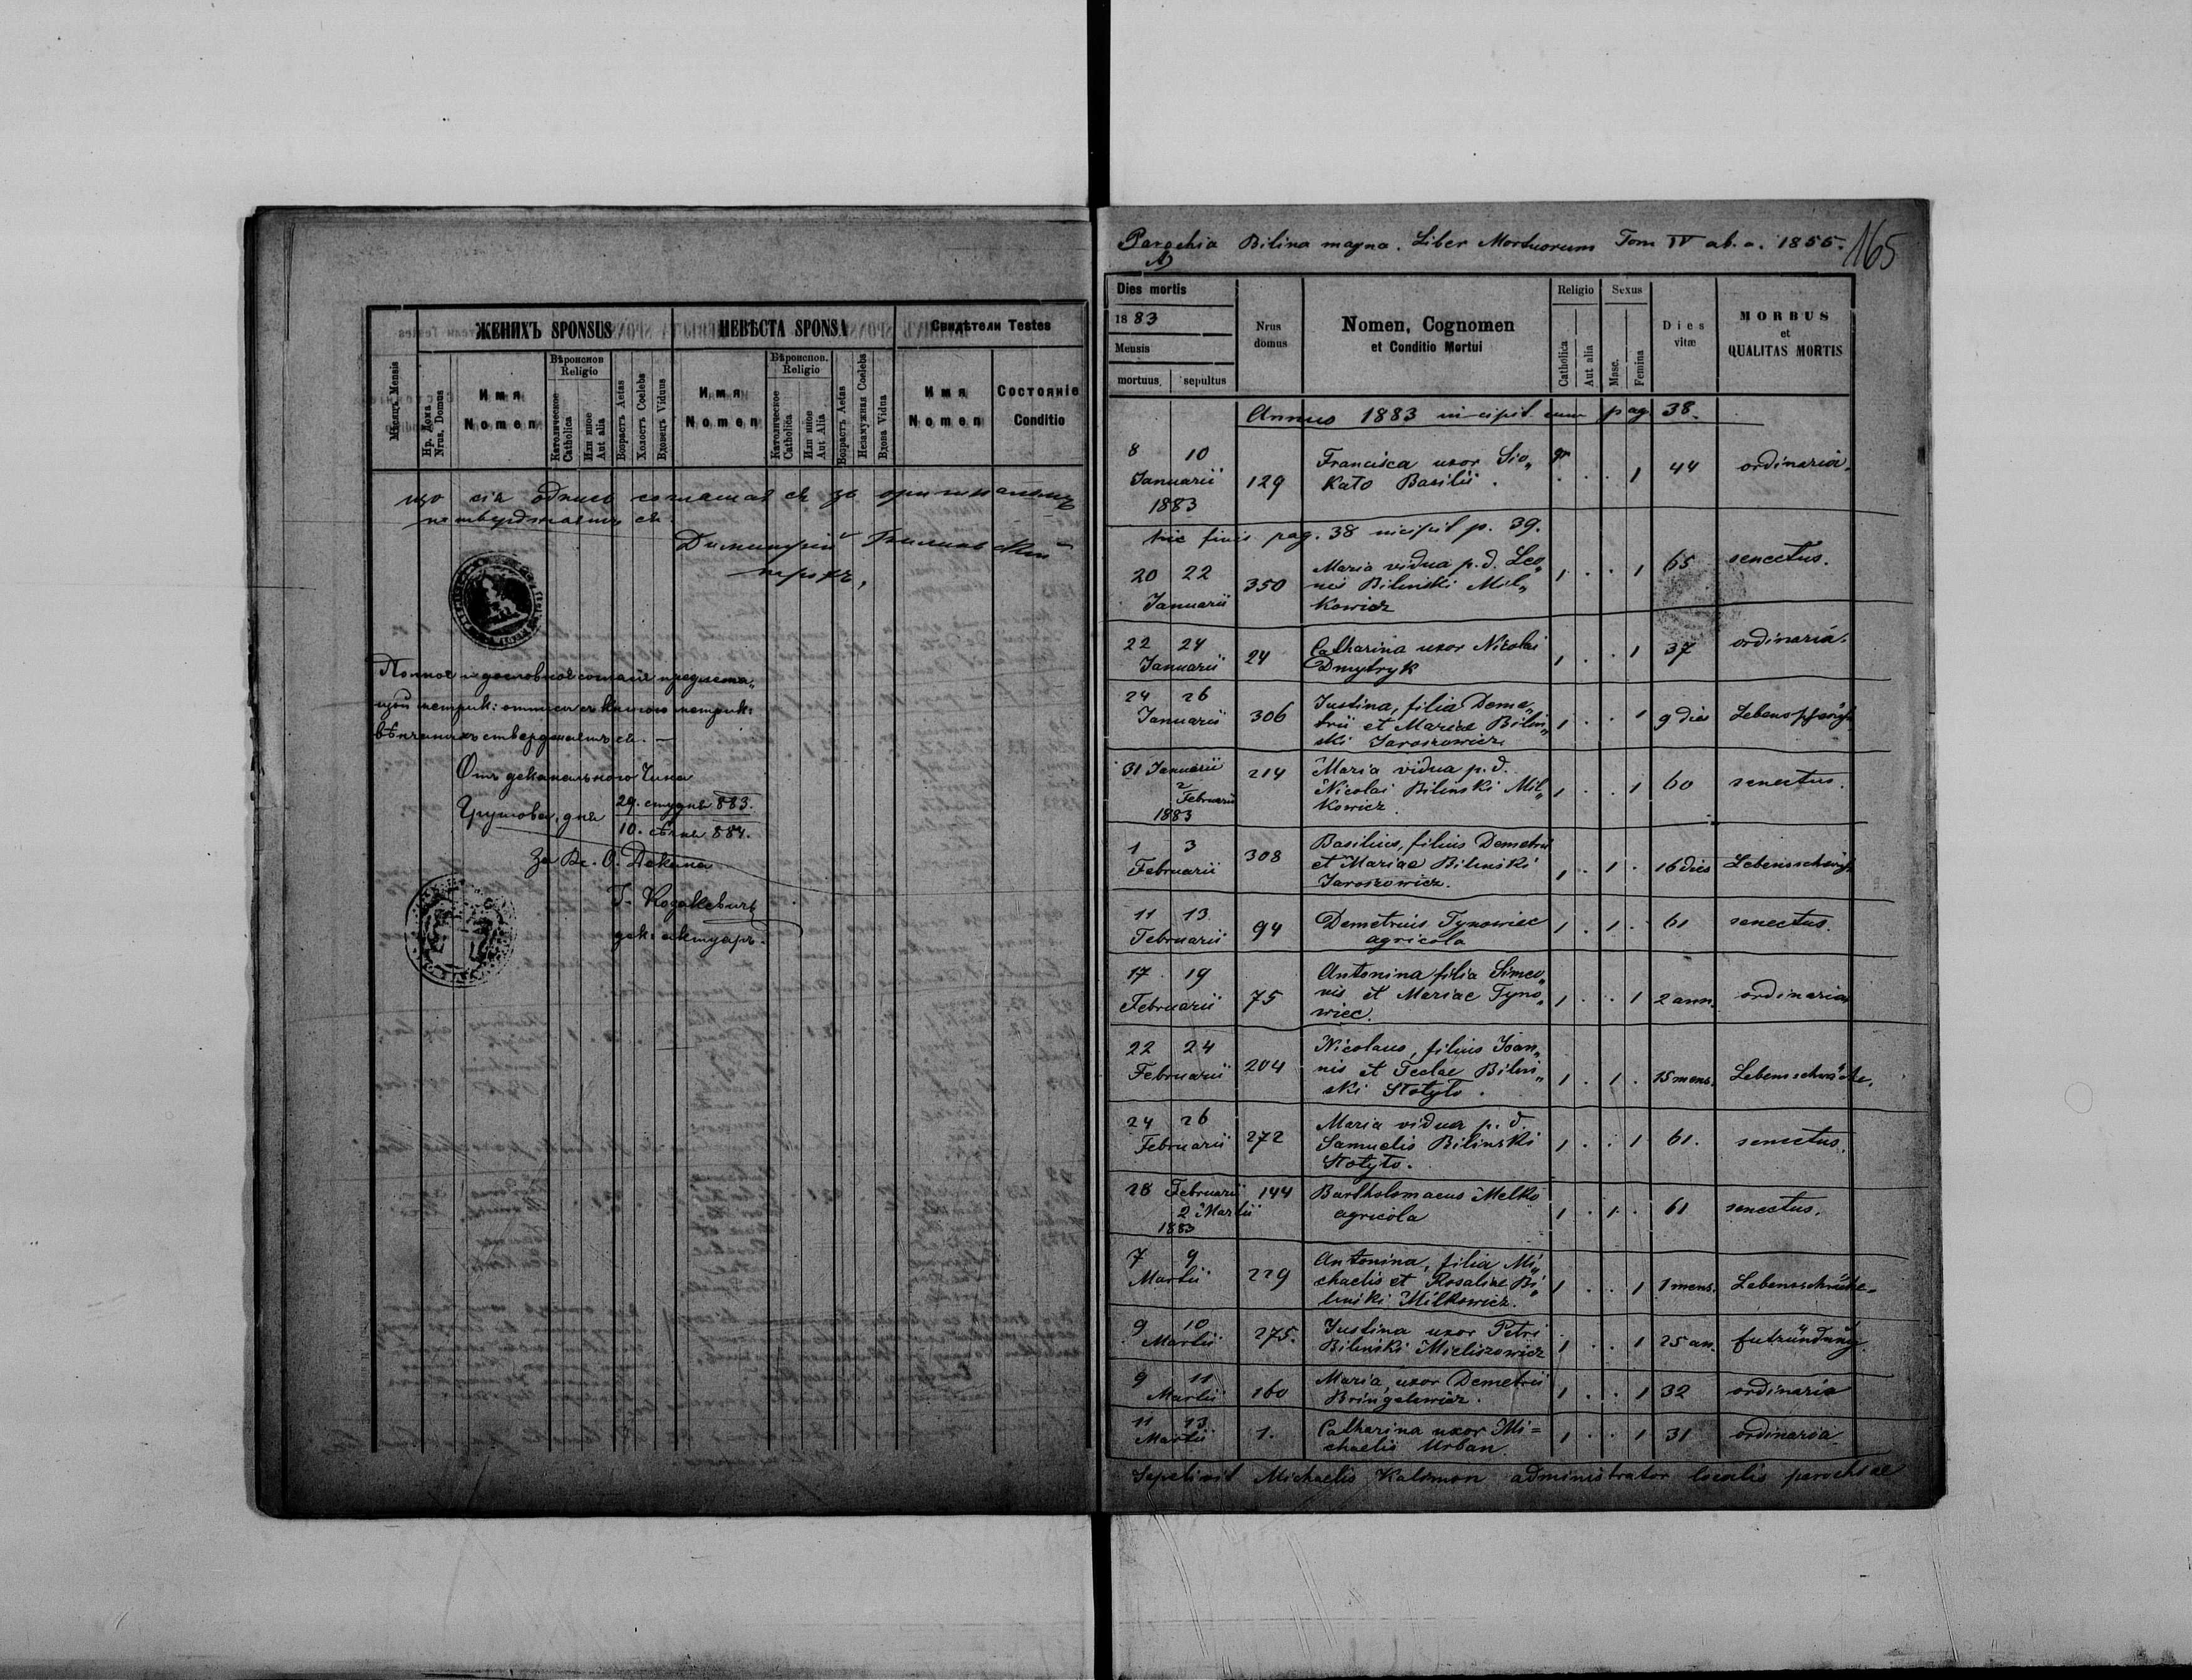 ЖЕНИХЪ SPONSUS
НЕВѢСТА SPONSA
Свидѣтели Testes
Мѣсяцъ Mensis
Нр. Дома
Nrus, Domus
Имя
Nomen
Вѣроиспов
Religio
Католическое
Catholica
Или иное
Aut alia
Возрастъ Aetas
Холостъ Coelebs
Вдовецъ Vidus
Имя
Nomen
Вѣроиспов.
Religio
Католическое
Catholica
Или иное
Aut Alia
Возрастъ Aetas
Незамужная Coelebs
Вдова Vidua
Имя
Nomen
Состояніе
Conditio
що сія
Димитрій
Отъ деканального Чина
дня 29. студня 883.
10. сѣчня 884.
За Вс. О. Декана
Parochia Bilina magna. Liber Mortuorum Tom IV ab. a. 1855.
165
Dies mortis
1883
Mensis
mortuus sepultus
Nrus
domus
Nomen, Cognomen
et Conditio Mortui
Religio
Catholica
Aut alia
Sexus
Masc.
Femina
Dies
vitæ
MORBUS
et
QUALITAS MORTIS
Annus 1883 incipit cum pag 38.
8 10 Francisca uxor Sio„ gr
Januarii 129 Kato Basilii . 1 44 ordinaria.
1883
hic finis pag. 38 incipit p. 39.
20 22 350 Maria vidua p. d. Leo„ 1 . . 1 65 senectus.
nis Bilinski Mil„
Januarii Kowicz
22 24 24 Catharina uxor Nicolai 1 . . 1 37 ordinaria.
Januarii Dmytryk
24 26 Justina, filia Deme„
Januarii 306 trii et Mariae Bilin„ 1 . . 1 9 dies
ski Jaroszowicz
31 Januarii 214 Maria vidua p. d.
2 Februarii Nicolai Bilinski Mil„ 1 . . 1 60 senectus.
1883 Kowicz
1 3 308 Basilius, filius Demetrii
Februarii et Mariae Bilinski 1 . 1 . 16 dies
Jaroszowicz.
11 13 94 Demetrius Tynowiec 1 . 1 . 61 senectus.
Februarii agricola
17 19 Antonina filia Simeo„
Februarii 75 nis et Mariae Tyno„ 1 . . 1 2 ann. ordinaria
wiec.
22 24 Nicolaus, filius Joan„
Februarii 204 nis et Teclae Bilin„ 1 . 1 . 15 mens. Lebensschwäche.
ski Stotyto .
24 26 Maria vidua p. d.
Februarii 272 Samuelis Bilinski 1 . . 1 61. senectus.
Stotyto.
28 Februarii 144 Bartholomaeus Melko
2 Martii agricola 1 . 1 . 61 senectus.
1883
7 9 Antonina, filia Mi„
Martii 229 chaelis et Rosaliae Bi„ 1 . . 1 1 mens. Lebensschwäche.
linski Milkowicz.
9 10 275. Justina uxor Petri
Martii Bilinski Mieliszowicz 1 . . 1 25 an.
9 11 Maria, uxor Demetrii
Martii 160 1 . . 1 32 ordinaria
11 13 1. Catharina uxor Mi=
Martii chaelis Urban. 1 . . 1 31 ordinaria.
Sepelivit Michaelis Kalimon administrator localis parochiae